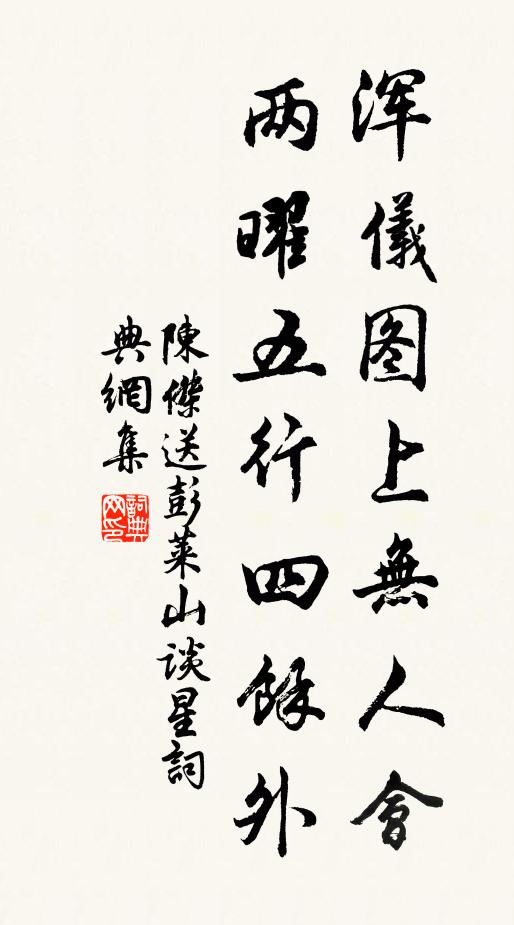 浑儀图上無人會
两曜五行四餘外
陳傑送彭萊山谈星詞
典網集
詞典网印